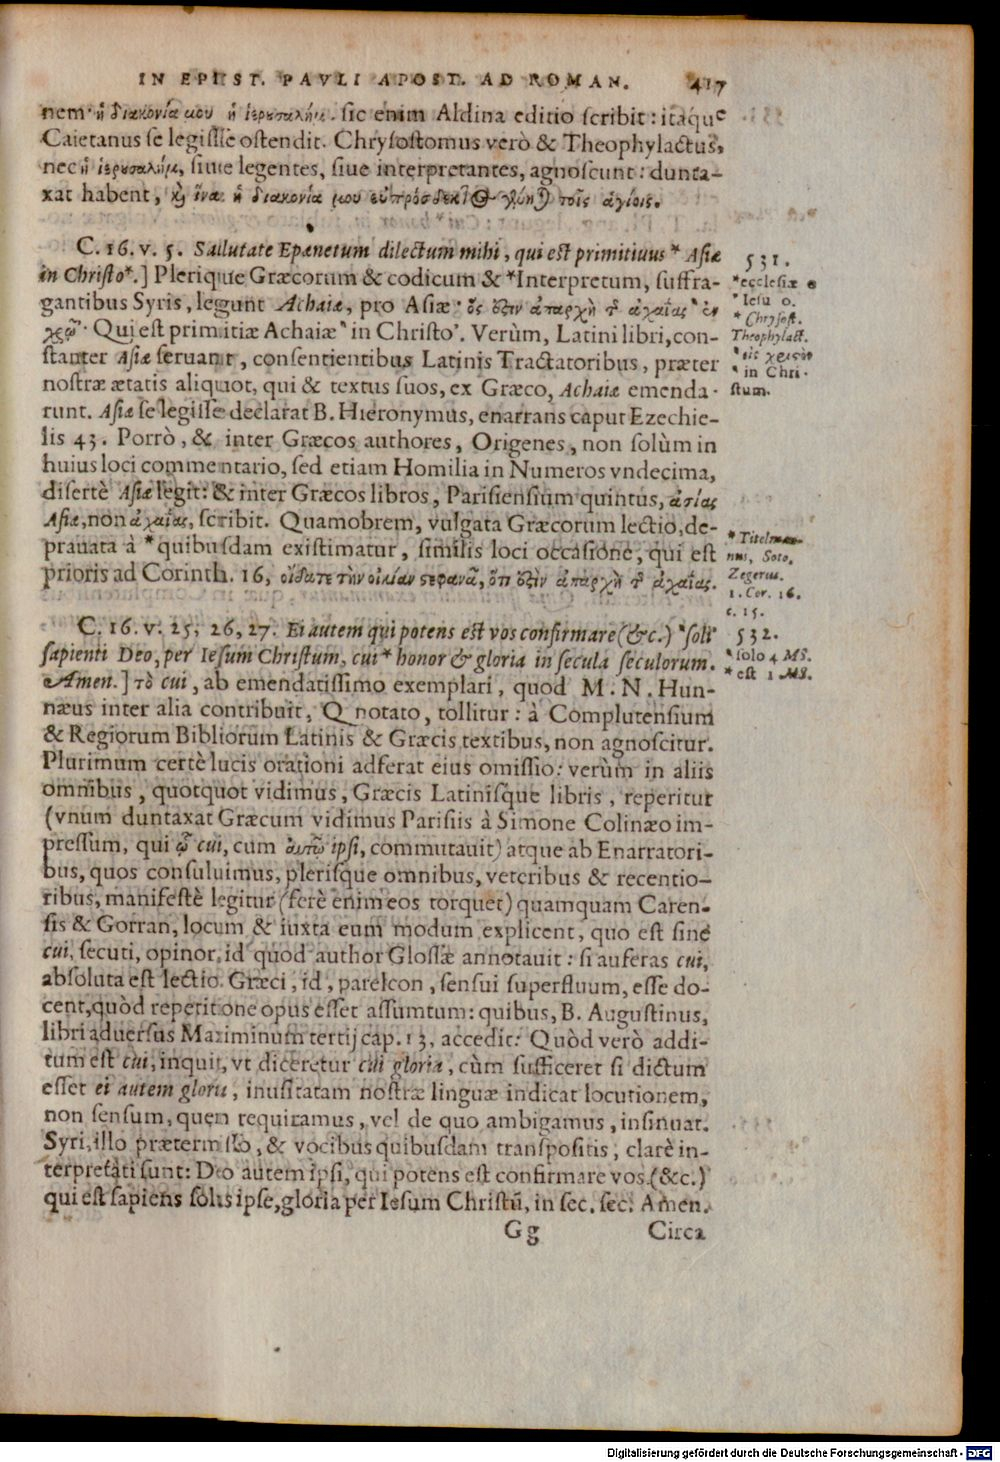 IN EPIST. PAVLI APOST. AD ROMAN. 417
nem· ἡ διακονία μου ἡ ἱερυσαλήμ. sic enim Aldina editio scribit: itaque
Caietanus se legisse ostendit. Chrysostomus verò & Theophylactus,
nec ἡ ἱερυσαλήμ, siue legentes, siue interpretantes, agnoscunt: dunta-
xat habent, καὶ ἵνα ἡ διακονία μου εὐπρόσδεκτος γένηται τοῖς ἁγίοις.
C. 16. v. 5. Sallutate Epænetum dilectum mihi, qui est primitiuus * Asiæ
in Christo*.] Plerique Græcorum & codicum & *Interpretum, suffra-
gantibus Syris, legunt Achaiæ, pro Asiæ· ὅς ἐστιν ἀπαρχὴ τ ἀχαΐας ‵ ἐν
χρῷ· Qui est primitiæ Achaiæ ‵ in Christo’. Verùm, Latini libri, con-
stanter Asiæ seruant, consentientibus Latinis Tractatoribus, præter
nostræ ætatis aliquot, qui & textus suos, ex Græco, Achaiæ emenda-
runt. Asiæ se legisse declarat B. Hieronymus, enarrans caput Ezechie-
lis 43. Porrò, & inter Græcos authores, Origenes, non solùm in
huius loci commentario, sed etiam Homilia in Numeros vndecima,
disertè Asiæ legit: & inter Græcos libros, Parisiensium quintus, ἀσίας
Asiæ, non ἀχαΐας, scribit. Quamobrem, vulgata Græcorum lectio, de-
prauata à *quibusdam existimatur, similis loci occasione, qui est
prioris ad Corinth. 16, οἴδατε τὴν οἰκίαν στεφανᾶ, ὅτι ἐστὶν ἀπαρχὴ τ ἀχαΐας.
C. 16. v. 25, 26, 27. Ei autem qui potens est vos confirmare (&c.) ‵soli
sapienti Deo, per Iesum Christum, cui * honor & gloria in secula seculorum.
Amen.] τὸ cui, ab emendatissimo exemplari, quod M. N. Hun-
næus inter alia contribuit, Q notato, tollitur: à Complutensium
& Regiorum Bibliorum Latinis & Græcis textibus, non agnoscitur.
Plurimum certè lucis orationi adferat eius omissio: verùm in aliis
omnibus, quotquot vidimus, Græcis Latinisque libris, reperitur
(vnum duntaxat Græcum vidimus Parisiis à Simone Colinæo im-
pressum, qui ᾧ cui, cum αὐτῷ ipsi, commutauit) atque ab Enarratori-
bus, quos consuluimus, plerisque omnibus, veteribus & recentio-
ribus, manifestè legitur (ferè enim eos torquet) quamquam Caren-
sis & Gorran, locum & iuxta eum modum explicent, quo est sine
cui, secuti, opinor, id quod author Glossæ annotauit: si auferas cui,
absoluta est lectio. Græci, id, parelcon, sensui superfluum, esse do-
cent, quòd repetitione opus esset assumtum: quibus, B. Augustinus,
libri aduersus Maximinum tertij cap. 13, accedit: Quòd verò addi-
tum est cui, inquit, vt diceretur cui gloria, cùm sufficeret si dictum
esset ei autem gloria, inusitatam nostræ linguæ indicat locutionem,
non sensum, quem requiramus, vel de quo ambigamus, insinuat.
Syri, illo prætermisso, & vocibus quibusdam transpositis, clarè in-
terpretati sunt: Deo autem ipsi, qui potens est confirmare vos (&c.)
qui est sapiens solus ipse, gloria per Iesum Christũ, in sec. sec. Amen.
Gg Circa
531.
*ecclesiæ
* Iesu o.
* Chrysost.
Theophylact.
‵εἰς χριστὸν
‵ in Chri-
stum.
* Titelman-
nus, Soto,
Zegerus.
1. Cor. 16.
c. 15.
532.
‵solo 4 MS.
* est 1 MS.
Digitalisierung gefördert durch die Deutsche Forschungsgemeinschaft - DFG